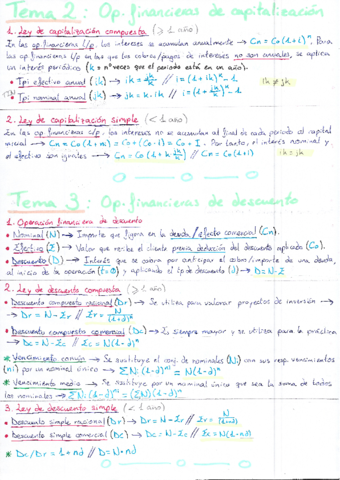 Tema 2: Op. financieras de capitalización
1. Ley de capitalización compuesta (≥ 1 año)
En las op. financieras l/p, los intereses se acumulan anualmente → Cn = Co(1+i)ⁿ. Para
las op. financieras en las que los cobros/pagos de intereses no son anuales, se aplica
un interés periódico (k = nº veces que el periodo está en un año).
• Tpi efectivo anual (ik) → ik = jk/k // i = (1+ik)ᵏ - 1 ik ≠ jk
• Tpi nominal anual (jk) → jk = k·ik // i = (1 + jk/k)ᵏ - 1
2. Ley de capitalización simple (< 1 año)
En las op. financieras c/p, los intereses no se acumulan al final de cada periodo al capital
inicial → Cn = Co(1+ni) = Co + (Co·i) = Co + I. Por tanto, el interés nominal y
el efectivo son iguales → Cn = Co(1+k jk/k) // Cn = Co(1+i) ik = jk
Tema 3: Op. financieras de descuento
1. Operación financiera de descuento
• Nominal (N) → Importe que figura en la deuda/efecto comercial (Cn).
• Efectivo (E) → Valor que recibe el cliente previa deducción del descuento aplicado (Co).
• Descuento (D) → Interés que se cobra por anticipar el cobro/importe de una deuda,
al inicio de la operación (t=0) y aplicando el tipo descuento (d) → D = N - E
2. Ley de descuento compuesta (≥ 1 año)
• Descuento compuesto racional (Dr) → Se utiliza para valorar proyectos de inversión →
→ Dr = N - Er // Er = N/(1+d)ⁿ
• Descuento compuesto comercial (Dc) → Es siempre mayor y se utiliza para la práctica
→ Dc = N - Ec // Ec = N(1-d)ⁿ
* Vencimiento común → Se sustituye el conj. de nominales (Ni) con sus resp. vencimientos
(ni) por un nominal único → ΣNi(1-d)ⁿⁱ = N(1-d)ⁿ
* Vencimiento medio → Se sustituye por un nominal único que sea la suma de todos
los nominales → ΣNi(1-d)ⁿⁱ = (ΣN)(1-d)ⁿ
3. Ley de descuento simple (< 1 año)
• Descuento simple racional (Dr) → Dr = N - Er // Er = N/(1+nd)
• Descuento simple comercial (Dc) → Dc = N - Ec // Ec = N(1-nd)
* Dc/Dr = 1+nd // D = N·nd